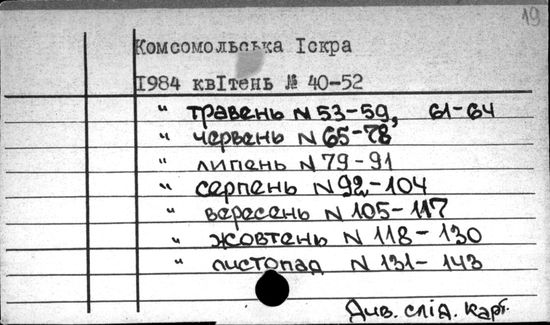 19
Комсомольська Іскра
1984 квІтень № 40-52
" травень N 53-59, 61-64
" червень N 65-78
" липень N 79-91
" серпень N 92-104
" вересень N 105-117
" жовтень N 118-130
" листопад N 131-143
Див. слід. карт.